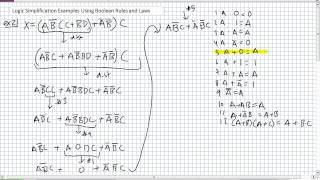 Logic Simplification Examples Using Boolean Rules and Laws
ex2] X = (AB̅(C+BD) + A̅B̅)C
(AB̅C + AB̅BD + A̅B̅)C
A B̅ C C + A B̅ B D C + A̅ B̅ C
A B̅ C + A B̅ B D C + A̅ B̅ C
A B̅ C + A 0 D C + A̅ B̅ C
A B̅ C + 0 + A̅ B̅ C
#5
A B̅ C + A̅ B̅ C
A·0 = 0
2 A·1 = A
3 A·A = A
4 A·A̅ = 0
5 A + 0 = A
6 A + 1 = 1
7 A + A̅ = 1
9 A̿ = A
10 A + AB = A
11 A + A̅B = A + B
12 (A+B)(A+C) = A + BC